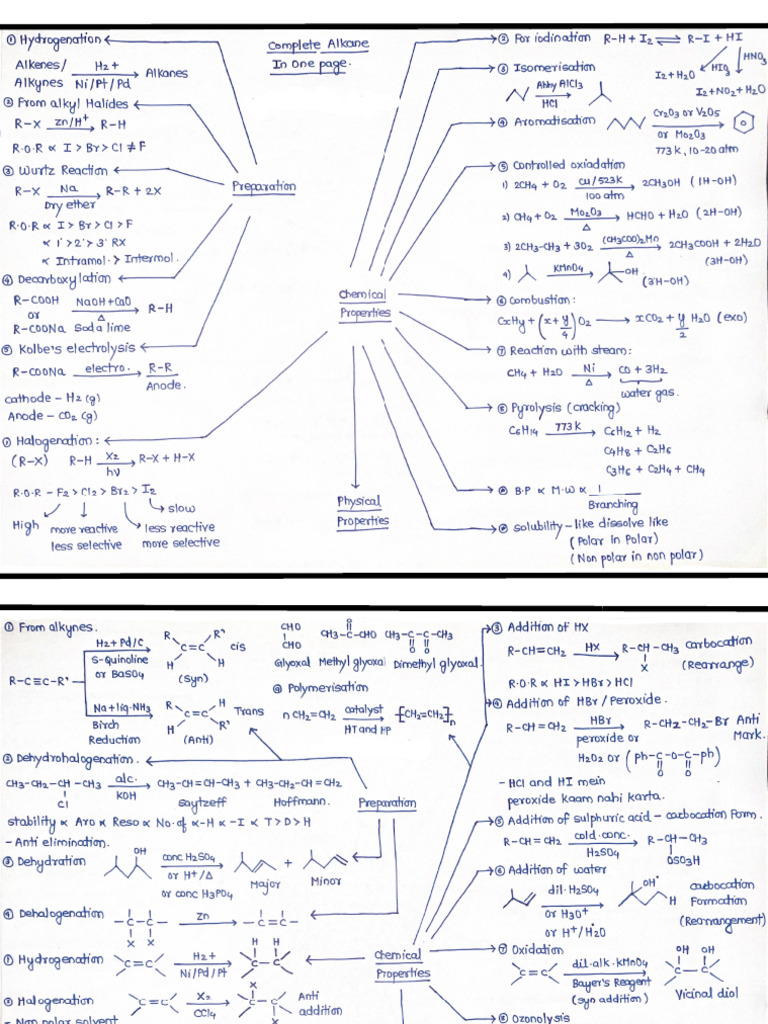 Complete Alkane
In one page.
① Hydrogenation
Alkenes/ Alkynes H2+ Ni/Pt/Pd → Alkanes
② From alkyl Halides
R-X zn/H+ → R-H
R.O.R ∝ I > Br > Cl ≠ F
③ Wurtz Reaction
R-X Na Dry ether → R-R + 2X
R.O.R ∝ I > Br > Cl > F
∝ 1˙ > 2˙ > 3˙ RX
∝ Intramol. > Intermol.
④ Decarboxylation
R-COOH or R-COONa NaOH+CaO Δ Soda lime → R-H
⑤ Kolbe's electrolysis
R-COONa electro. → R-R
Anode.
cathode - H2 (g)
Anode - CO2 (g)
Preparation
① Halogenation:
(R-X) R-H X2 hν → R-X + H-X
R.O.R - F2 > Cl2 > Br2 > I2
High
more reactive
less selective
less reactive
more selective
slow
Chemical
Properties
Physical
Properties
② For iodination R-H + I2 ⇌ R-I + HI
HIO3
HNO3
I2 + H2O
I2 + NO2 + H2O
③ Isomerisation
AlCl3
HCl
④ Aromatisation
Cr2O3 or V2O5
or Mo2O3
773 k, 10-20 atm
⑤ Controlled oxiadation
1) 2CH4 + O2 Cu/523K 100 atm → 2CH3OH (1H-OH)
2) CH4 + O2 Mo2O3 Δ → HCHO + H2O (2H-OH)
3) 2CH3-CH3 + 3O2 (CH3COO)2Mn Δ → 2CH3COOH + 2H2O
(3H-OH)
4) KMnO4 → OH (3˙H-OH)
⑥ Combustion:
CxHy + (x + y/4) O2 → xCO2 + y/2 H2O (exo)
⑦ Reaction with steam:
CH4 + H2O Ni Δ → CO + 3H2
water gas.
⑧ Pyrolysis (cracking)
C6H14 773K → C6H12 + H2
C4H8 + C2H6
C3H6 + C2H4 + CH4
B.P ∝ M.W ∝ 1/Branching
solubility - like dissolve like
(Polar in Polar)
(Non polar in non polar)
① From alkynes.
R-C≡C-R'
H2 + Pd/C
S-Quinoline
or BaSO4
R R' C=C H H cis
(Syn)
Na + liq. NH3
Birch
Reduction
R H C=C H R' Trans
(Anti)
CHO
CHO
CH3-C-CHO
O
CH3-C-C-CH3
O O
Glyoxal Methyl glyoxal Dimethyl glyoxal.
⑨ Polymerisation
n CH2=CH2 catalyst HT and HP → [CH2=CH2]n
② Dehydrohalogenation.
CH3-CH2-CH-CH3 Cl alc. KOH → CH3-CH=CH-CH3 + CH3-CH2-CH=CH2
Saytzeff Hoffmann.
stability ∝ Aro ∝ Reso ∝ No. of ∝-H ∝ -I ∝ T > D > H
- Anti elimination.
③ Dehydration
OH
conc H2SO4
or H+/Δ
or conc H3PO4
+
Major Minor
④ Dehalogenation -C-C- X X Zn → -C=C-
Preparation
① Hydrogenation C=C H2+ Ni/Pd/Pt → H H C-C
② Halogenation C=C X2 CCl4 → X C-C X Anti
addition
- Non polar solvent
Chemical
Properties
③ Addition of HX
R-CH=CH2 HX → R-CH-CH3 X carbocation
(Rearrange)
R.O.R ∝ HI > HBr > HCl
④ Addition of HBr / Peroxide.
R-CH=CH2 HBr → R-CH2-CH2-Br Anti
Mark.
peroxide or
H2O2 or (ph-C-O-C-ph)
O O
- HCl and HI mein
peroxide kaam nahi karta.
⑤ Addition of sulphuric acid - carbocation Form.
R-CH=CH2 cold. conc. H2SO4 → R-CH-CH3
OSO3H
⑥ Addition of water
dil. H2SO4
or H3O+
or H+/H2O
OH
H
carbocation
Formation
(Rearrangement)
⑦ Oxidation
C=C dil. alk. KMnO4 → OH OH C-C
Bayer's Reagent
(syn addition)
Vicinal diol
⑧ Ozonolysis